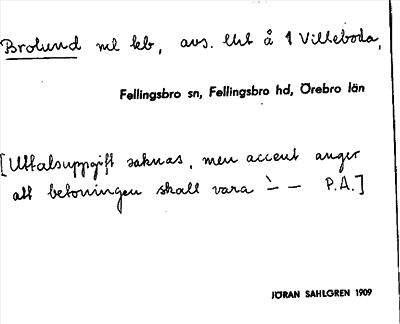 Brolund ml kb, avs. lht å 1 Villeboda,
Fellingsbro sn, Fellingsbro hd, Örebro län
[Uttalsuppgift saknas, men accent anger
att betoningen skall vara ̀– – P.A.]
JÖRAN SAHLGREN 1909